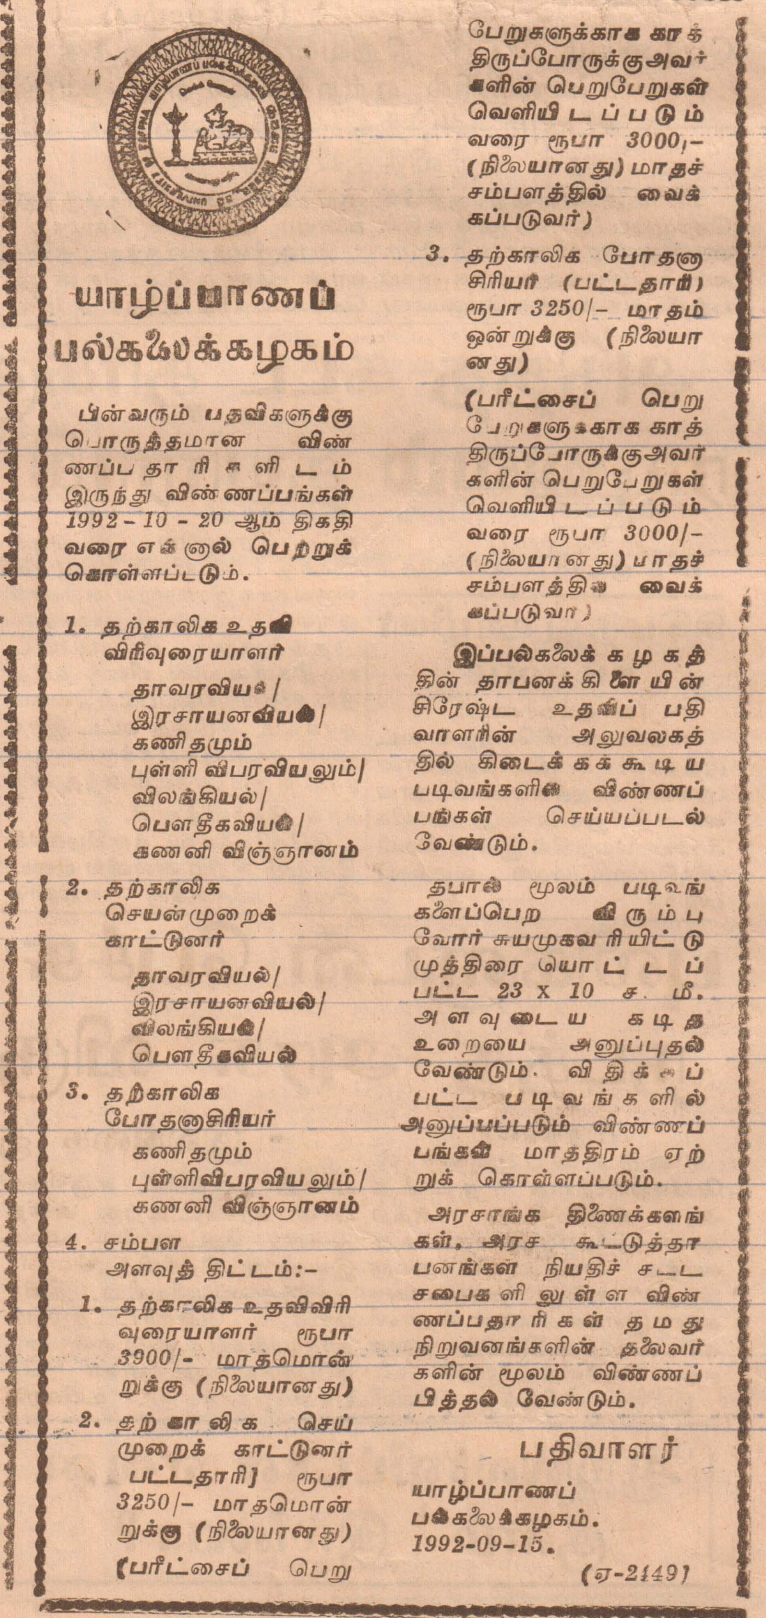 யாழ்ப்பாணப்
பல்கலைக்கழகம்
பின்வரும் பதவிகளுக்கு
பொருத்தமான விண்
ணப்ப தா ரி க ளி ட ம்
இருந்து விண்ணப்பங்கள்
1992-10-20 ஆம் திகதி
வரை என்னால் பெற்றுக்
கொள்ளப்படடும்.
1. தற்காலிக உதவி
விரிவுரையாளர்
தாவரவியல்/
இரசாயனவியல்/
கணிதமும்
புள்ளி விபரவியலும்/
விலங்கியல்/
பௌதீகவியல்/
கணனி விஞ்ஞானம்
2. தற்காலிக
செயன்முறைக்
காட்டுனர்
தாவரவியல்/
இரசாயனவியல்/
விலங்கியல்/
பௌதீகவியல்
3. தற்காலிக
போதனாசிரியர்
கணிதமும்
புள்ளிவிபரவியலும்/
கணனி விஞ்ஞானம்
4. சம்பள
அளவுத் திட்டம்:-
1. தற்காலிக உதவிவிரி
வுரையாளர் ரூபா
3900/- மாதமொன்
றுக்கு (நிலையானது)
2. தற் கா லி க செய்
முறைக் காட்டுனர்
பட்டதாரி] ரூபா
3250/- மாதமொன்
றுக்கு (நிலையானது)
(பரீட்சைப் பெறு
பேறுகளுக்காக காத்
திருப்போருக்குஅவர்
களின் பெறுபேறுகள்
வெளியி ட ப் ப டு ம்
வரை ரூபா 3000,-
(நிலையானது) மாதச்
சம்பளத்தில் வைக்
கப்படுவர்)
3. தற்காலிக போதனா
சிரியர் (பட்டதாரி)
ரூபா 3250/- மாதம்
ஒன்றுக்கு (நிலையா
னது)
(பரீட்சைப் பெறு
பேறுகளுக்காக காத்
திருப்போருக்குஅவர்
களின் பெறுபேறுகள்
வெளியி ட ப் ப டு ம்
வரை ரூபா 3000/-
(நிலையானது) மாதச்
சம்பளத்தில் வைக்
கப்படுவர்)
இப்பல்கலைக் க ழ க த்
தின் தாபனக் கி ளை யின்
சிரேஷ்ட உதவிப் பதி
வாளரின் அலுவலகத்
தில் கிடைக் கக் கூ டி ய
படிவங்களில் விண்ணப்
பங்கள் செய்யப்படல்
வேண்டும்.
தபால் மூலம் படிவங்
களைப்பெற வி ரு ம் பு
வோர் சுயமுகவரியிட்டு
முத்திரை யொ ட் ட ப்
பட்ட 23 x 10 ச. மீ.
அ ள வு டை ய க டி த
உறையை அனுப்புதல்
வேண்டும். வி தி க் க ப்
பட்ட ப டி வ ங் க ளி ல்
அனுப்பப்படும் விண்ணப்
பங்கள் மாத்திரம் ஏற்
றுக் கொள்ளப்படும்.
அரசாங்க திணைக்களங்
கள், அரச கூட்டுத்தா
பனங்கள் நியதிச் சட்ட
சபைக ளி லு ள் ள விண்
ணப்பதாரி க ள் த ம து
நிறுவனங்களின் தலைவர்
களின் மூலம் விண்ணப்
பித்தல் வேண்டும்.
பதிவாளர்
யாழ்ப்பாணப்
பல்கலைக்கழகம்.
1992-09-15.
(ஏ-2149)